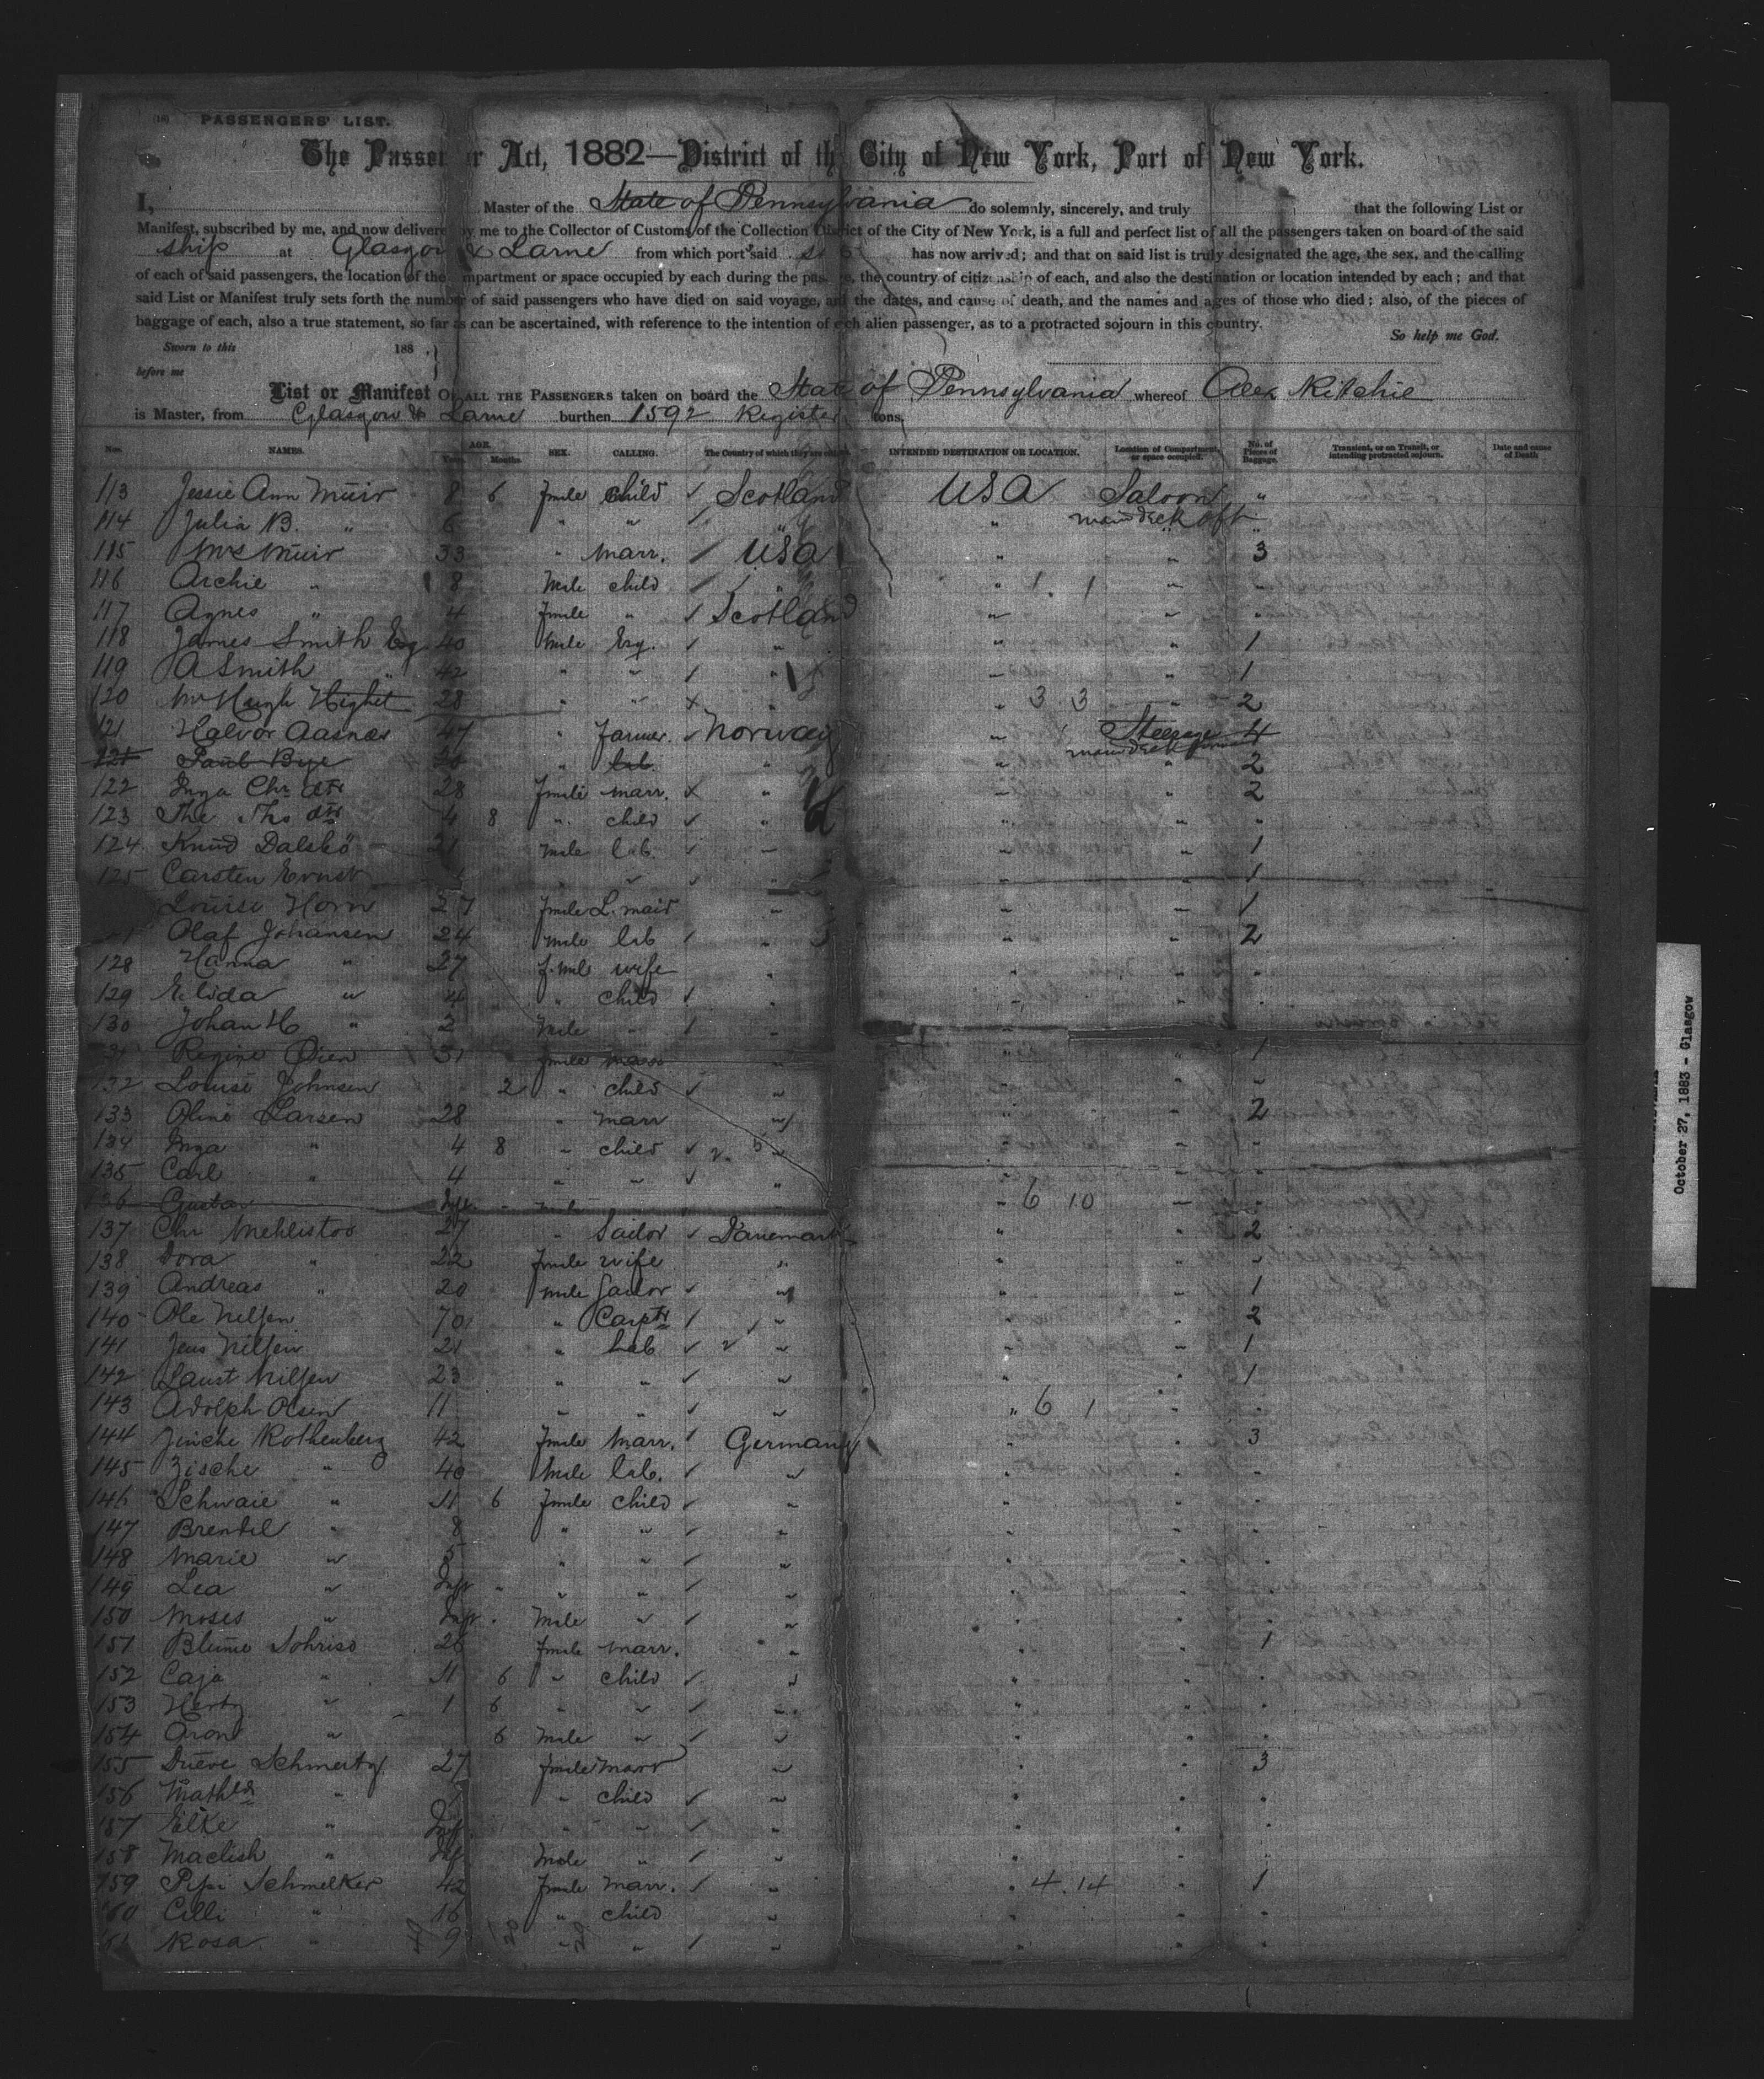 (10) PASSENGERS' LIST.
The Passenger Act, 1882—District of the City of New York, Port of New York.
I, Master of the State of Pennsylvania do solemnly, sincerely, and truly that the following List or
Manifest, subscribed by me, and now delivered by me to the Collector of Customs of the Collection District of the City of New York, is a full and perfect list of all the passengers taken on board of the said
ship at Glasgow & Larne from which port said has now arrived; and that on said list is truly designated the age, the sex, and the calling
of each of said passengers, the location of the compartment or space occupied by each during the passage, the country of citizenship of each, and also the destination or location intended by each; and that
said List or Manifest truly sets forth the number of said passengers who have died on said voyage, and the dates, and cause of death, and the names and ages of those who died; also, of the pieces of
baggage of each, also a true statement, so far as can be ascertained, with reference to the intention of each alien passenger, as to a protracted sojourn in this country.
So help me God.
Sworn to this 188
before me
List or Manifest OF ALL THE PASSENGERS taken on board the State of Pennsylvania whereof Alex Ritchie
is Master, from Glasgow & Larne burthen 1592 Register tons.
Nos. NAMES. AGE. Years. Months. SEX. CALLING. The Country of which they are citizens. INTENDED DESTINATION OR LOCATION. Location of Compartment or space occupied. No. of Pieces of Baggage. Transient, or on Transit, or intending protracted sojourn. Date and cause of Death
113 Jessie Ann Muir 8 6 Fmile child ✓ Scotland USA Saloon "
114 Julia B. " 6 " " ✓ " " main deck aft "
115 Mrs Muir 33 " Marr. / USA " " 3
116 Archie " 8 Mile child / " " 1. 1 " "
117 Agnes " 4 Fmile " ✓ Scotland " " "
118 James Smith Esq 40 Mile Esq. ✓ " " " 1
119 A Smith " 42 " " ✓ " " 1
120 Mr Hugh Highet 28 " " X " 3 3 " 2
121 Halvor Aasnæs 47 " Farmer. ✓ Norway " Steerage 4
121 Paul Bye 20 " lab. " " main deck 2
122 Inga Chr. dtr 28 Fmile marr. X " " " 2
123 The Tho dtr 4 8 " child ✓ " " " "
124 Knud Dalsbö 21 Mile lab. ✓ " " " 1
125 Carsten Ernst " " ✓ " " 1
Louise Horn 27 Fmile L. maid " " " 1
Olaf Johansen 24 Mile lab ✓ " " " 2
128 Hanna " 27 f.mile wife " " "
129 Elida " 4 " child ✓ " " "
130 Johan H " 2 Mile " ✓ "
131 Regine Öien 31 Fmile marr " " " 1
132 Louise Johnsen 2 " child ✓ " "
133 Oline Larsen 28 " marr " " 2
134 Inga " 4 8 " child ✓ " " "
135 Carl " 4 " " ✓ " "
136 Gustav Inft. " Mile " 6 10 " "
137 Chr Mehlistoo 27 " Sailor ✓ Danemark " " 2
138 Dora " 22 Fmile wife " " "
139 Andreas " 20 Mile Sailor ✓ " " " 1
140 Ole Nilsen 70 " Carptr / " " " 2
141 Jens Nilsen 21 " Lab ✓ " " " 1
142 Laust Nilsen 23 " " ✓ " " " 1
143 Adolph Olsen 11 " " ✓ " " 6 1 " "
144 Jinche Rothenberg 42 Fmile Marr. ✓ Germany " " 3
145 Zische " 40 Mile lab. ✓ " " " "
146 Schwaie " 11 6 Fmile child ✓ " " " "
147 Brendel " 8 " " ✓ " " " "
148 Marie " 5 " " ✓ " " " "
149 Lea " Inft " " " ✓ " " " "
150 Moses " Inft. " Mile " ✓ " " " "
151 Blume 26 Fmile marr. " " " 1
152 Caja " 11 6 " child ✓ " " " "
153 Hertz " 1 6 " " ✓ " " "
154 Aron " 6 Mile " ✓ " " " "
155 Dueve Schmertz 27 Fmile marr " " " 3
156 Mathlda " " child ✓ " " " "
157 Elke " Inft. " " ✓ " " " "
158 Maclish " Inf Mile " ✓ " " " "
159 Schmelker 42 Fmile marr. ✓ " " 4. 14 " 1
160 Cilli " 16 " child " " " "
161 Rosa " 9 " " ✓ " " " "
October 27, 1883 - Glasgow